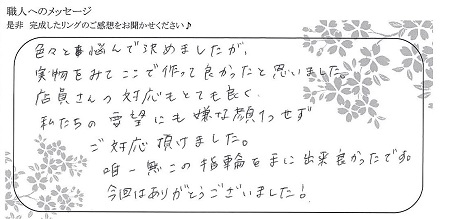 職人へのメッセージ
是非 完成したリングのご感想をお聞かせください♪
色々と悩んで決めましたが、
実物をみてここで作って良かったと思いました。
店員さんの対応もとても良く、
私たちの要望にも嫌な顔1つせず
ご対応頂けました。
唯一無二の指輪を手に出来良かったです。
今回はありがとうございました!